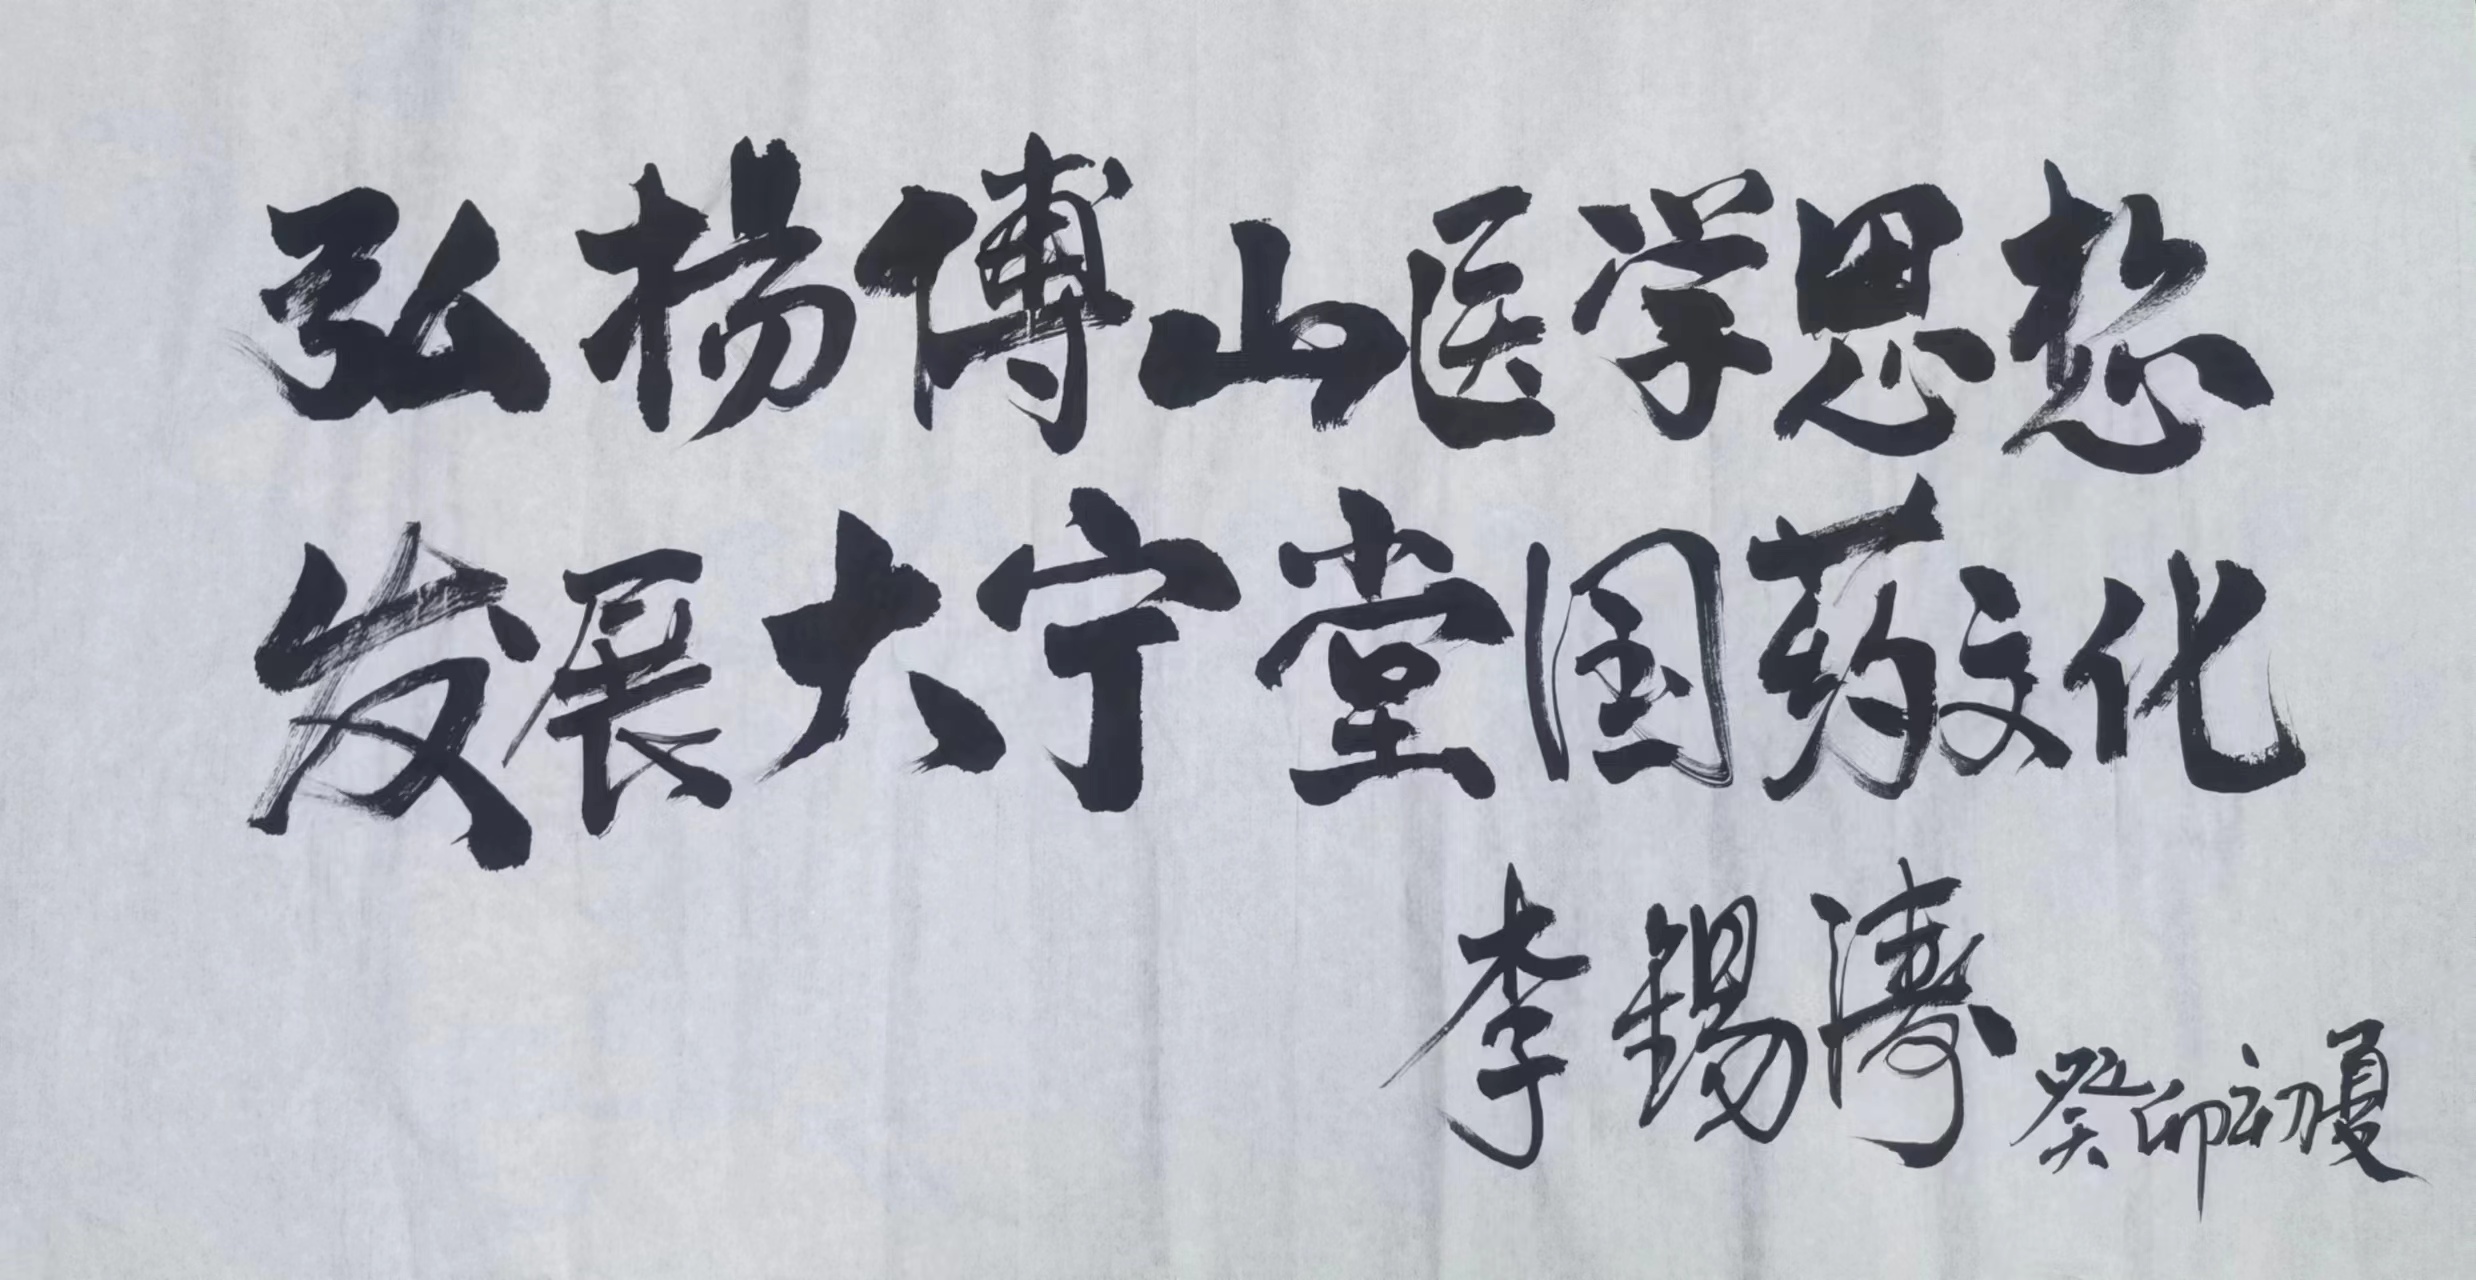 弘扬傅山医学思想
发展大宁堂国药文化
李锡涛
癸卯初夏